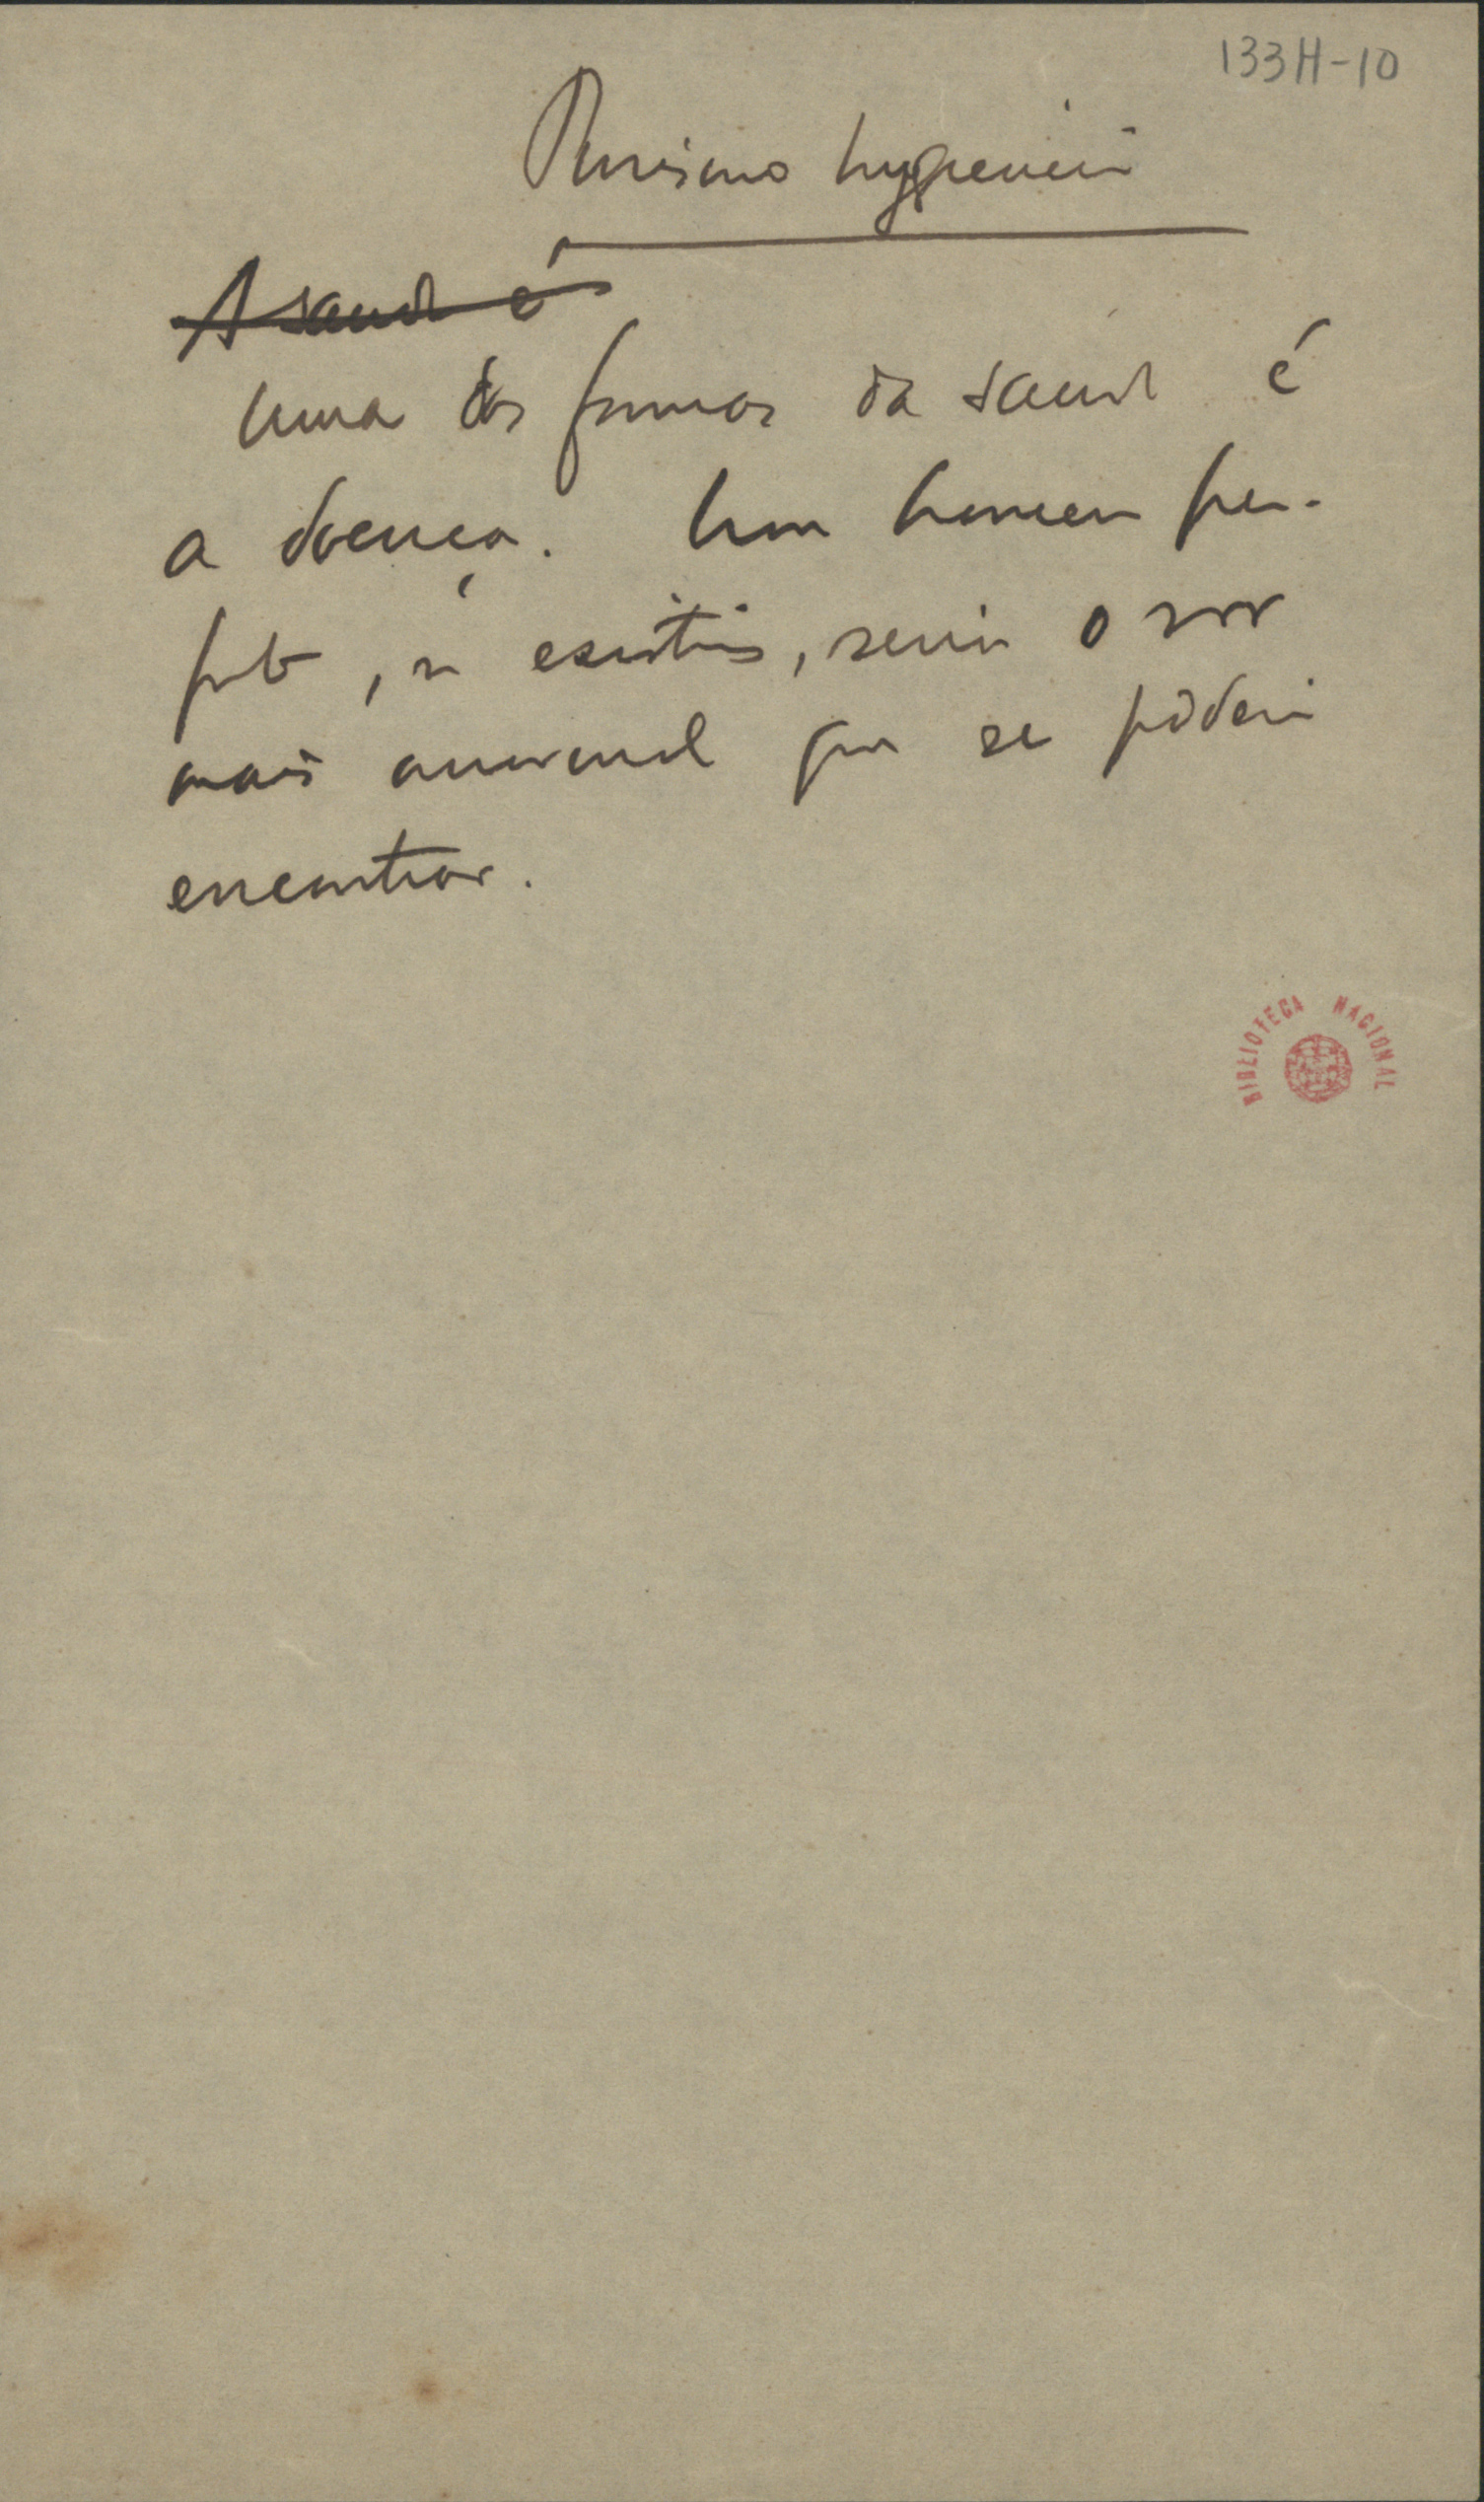 133H-10
Purismo hygienico
A saude é
Uma das formas da saude é
a doença. Um homem per-
feito, se existisse, seria o ser
mais anormal que se poderia
encontrar.
BIBLIOTECA NACIONAL